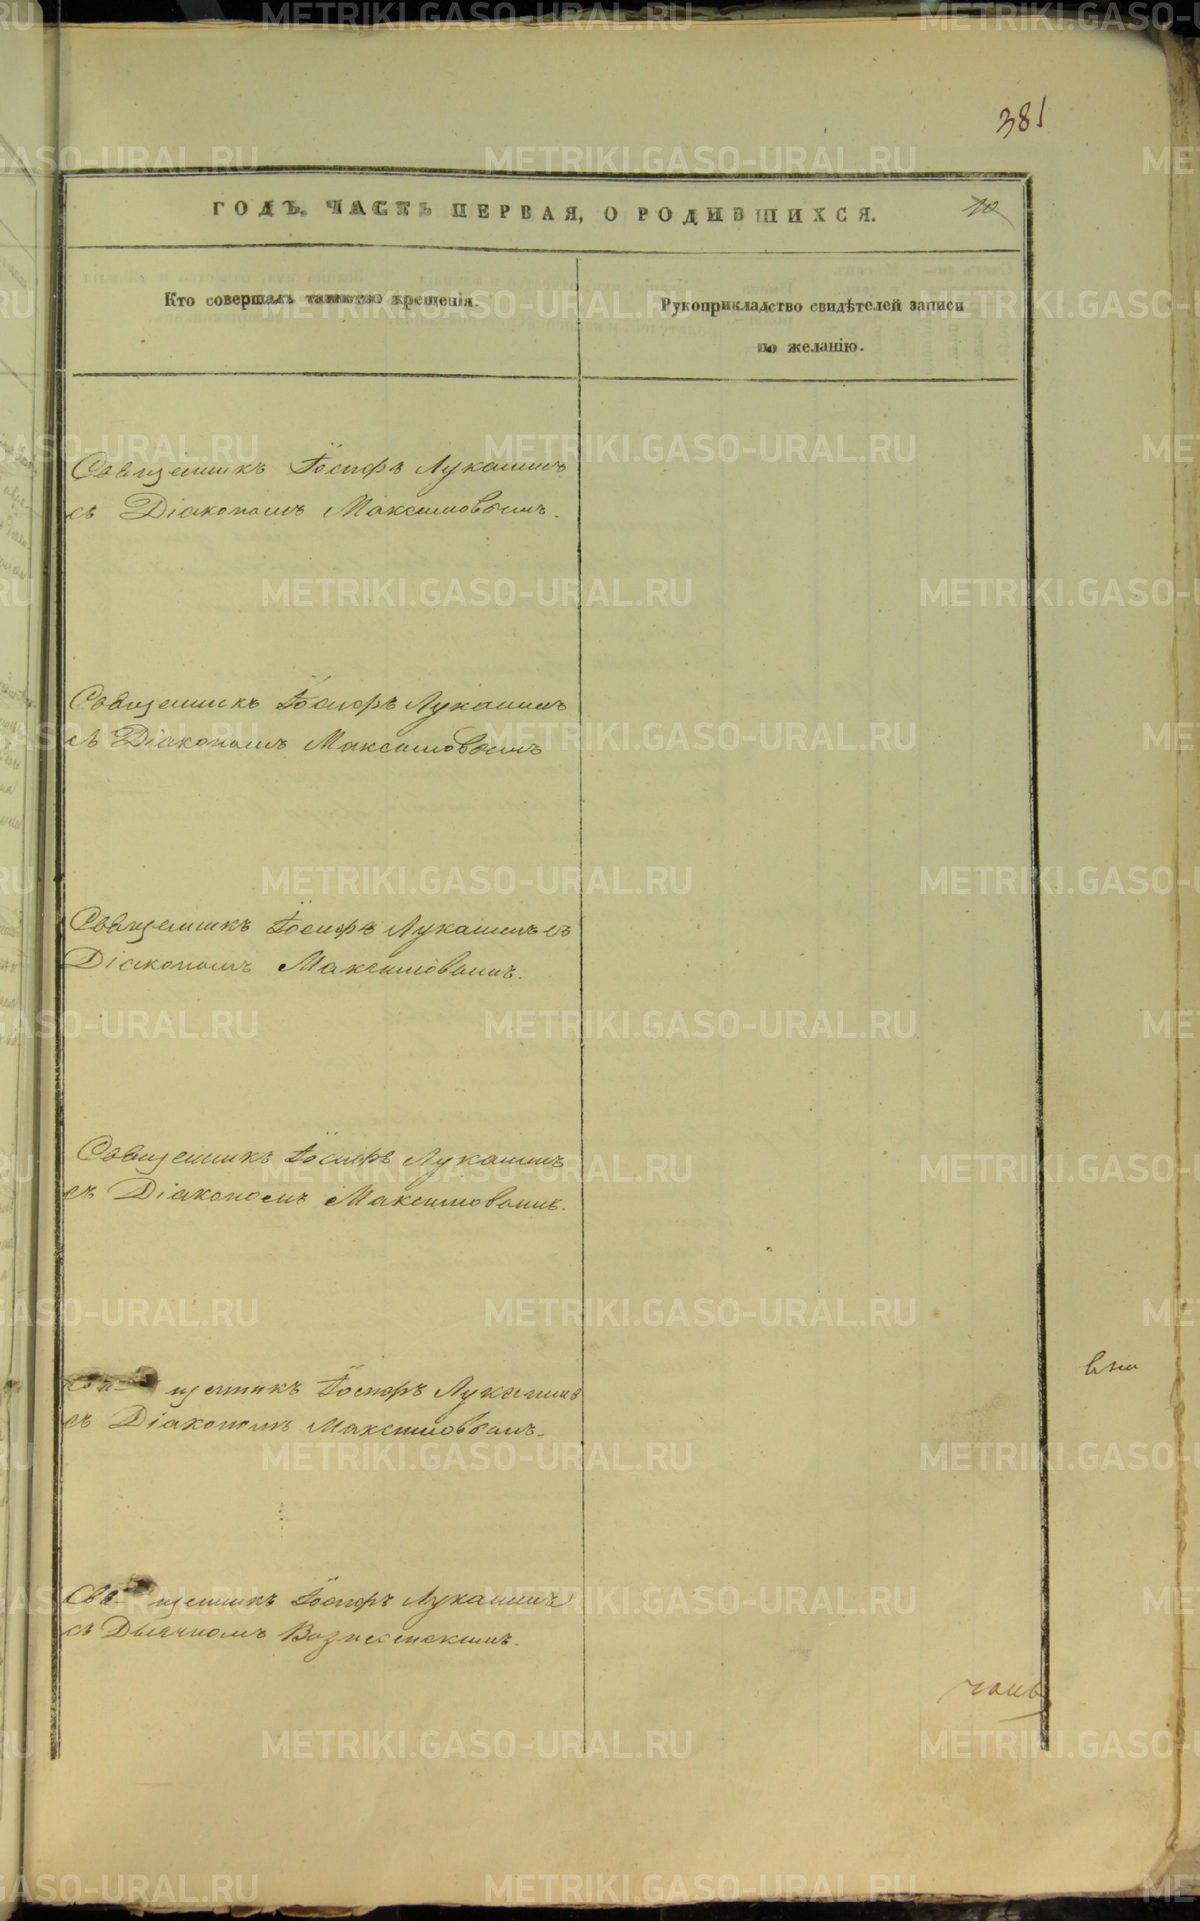 381
ГОДЪ. ЧАСТЬ ПЕРВАЯ, О РОДИВШИХСЯ.
10
Кто совершалъ таинство крещенія.
Рукоприкладство свидѣтелей записи
по желанію.
Священникъ Іосифъ Лукашинъ
съ Діакономъ Максимовымъ.
Священникъ Іосифъ Лукашинъ
съ Діакономъ Максимовымъ
Священникъ Іосифъ Лукашинъ съ
Діакономъ Максимовымъ.
Священникъ Іосифъ Лукашинъ
съ Діакономъ Максимовымъ.
Священникъ Іосифъ Лукашинъ
съ Діакономъ Максимовымъ.
Священникъ Іосифъ Лукашинъ
съ Дьячкомъ Вознесенскимъ.
METRIKI.GASO-URAL.RU